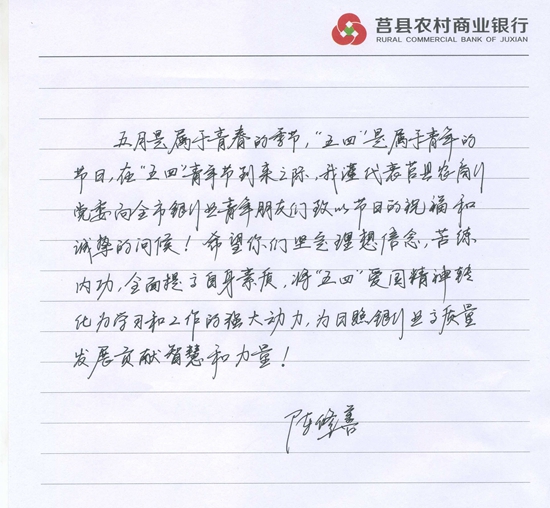 莒县农村商业银行
RURAL COMMERCIAL BANK OF JUXIAN
五月是属于青春的季节，“五四”是属于青年的
节日，在“五四”青年节到来之际，我谨代表莒县农商行
党委向全市银行业青年朋友们致以节日的祝福和
诚挚的问候！希望你们坚定理想信念，苦练
内功，全面提高自身素质，将“五四”爱国精神转
化为学习和工作的强大动力，为日照银行业高质量
发展贡献智慧和力量！
陈修善